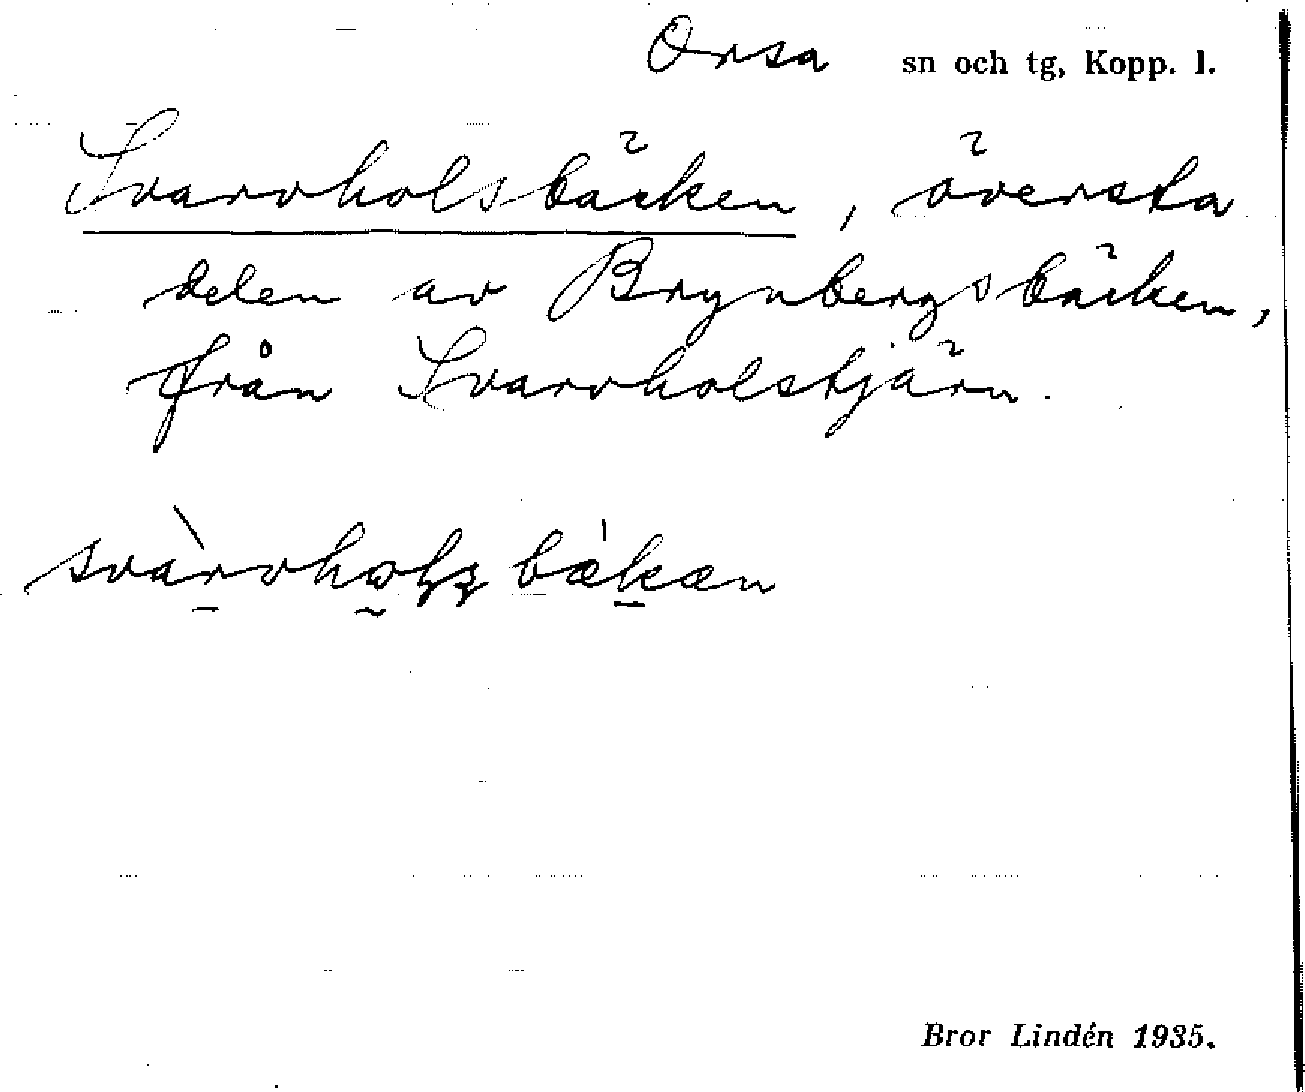 Orsa sn och tg, Kopp. l.
Svarvholsbäcken, översta
delen av Brynbergsbäcken,
från Svarvholstjärn.
svàrvholz bækæn
Bror Lindén 1935.